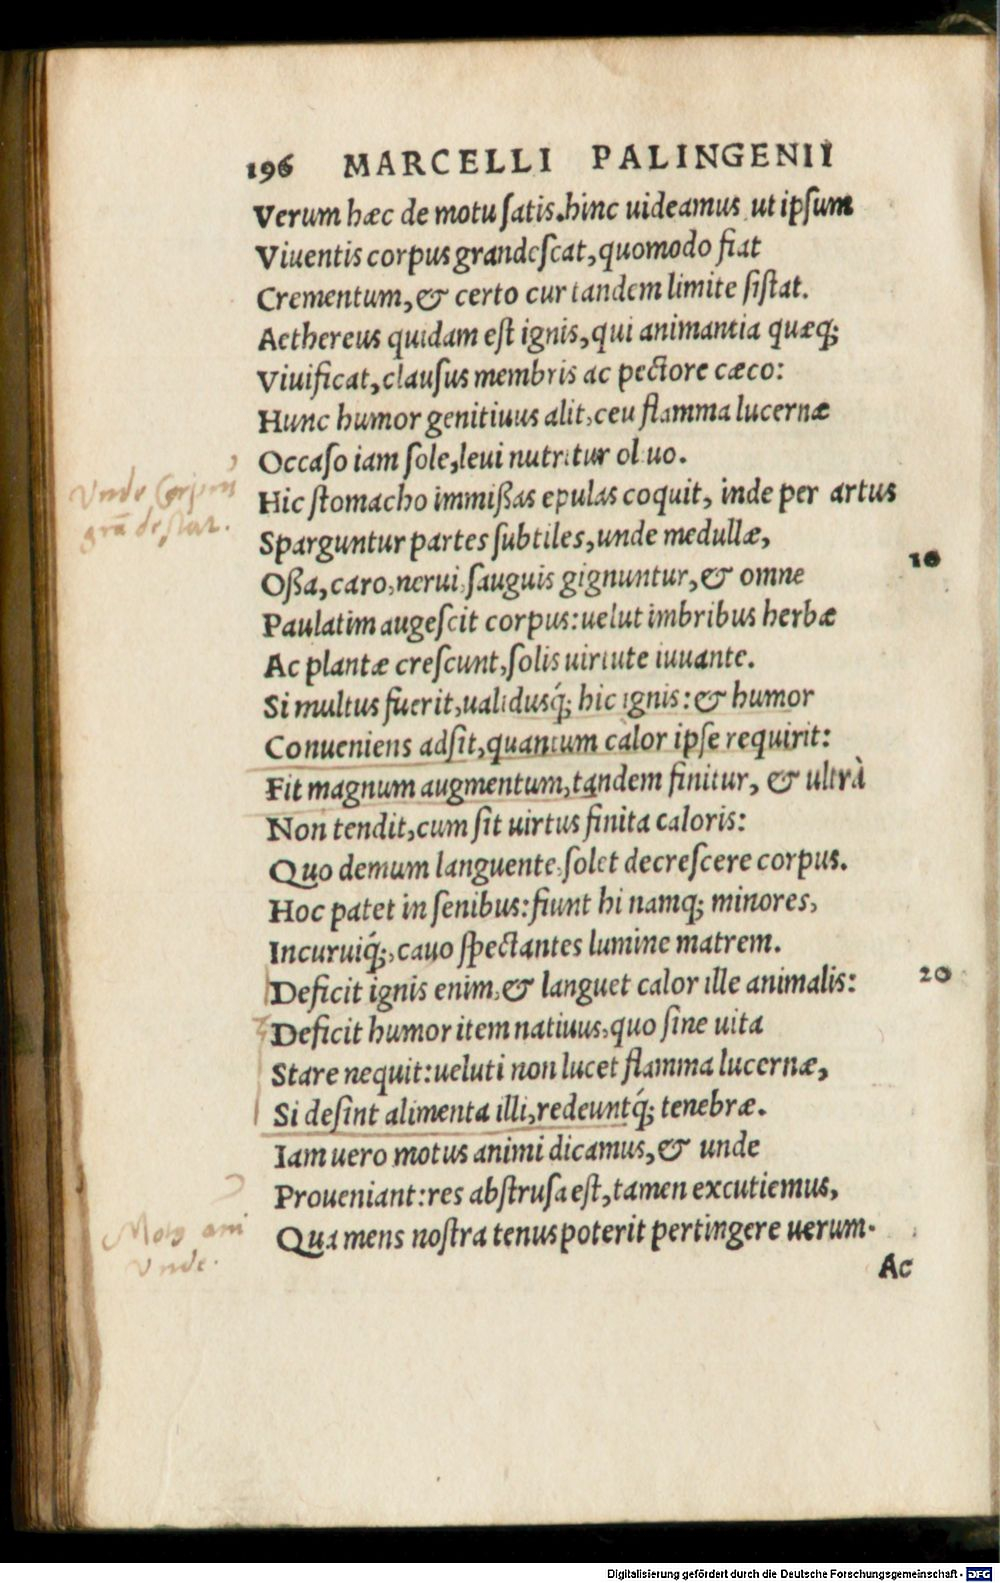 196 MARCELLI PALINGENII
Verum hæc de motu ſatis. hinc uideamus ut ipſum
Viuentis corpus grandeſcat, quomodo fiat
Crementum, & certo cur tandem limite ſiſtat.
Aethereus quidam eſt ignis, qui animantia quæq;
Viuificat, clauſus membris ac pectore cæco:
Hunc humor genitiuus alit, ceu flamma lucernæ
Occaſo iam ſole, leui nutritur oliuo.
Hic ſtomacho immiſſas epulas coquit, inde per artus
Sparguntur partes ſubtiles, unde medullæ,
Oſſa, caro, nerui, ſauguis gignuntur, & omne
10
Paulatim augeſcit corpus: uelut imbribus herbæ
Ac plantæ creſcunt, ſolis uirtute iuuante.
Si multus fuerit, ualidusq́; hic ignis: & humor
Conueniens adſit, quantum calor ipſe requirit:
Fit magnum augmentum, tandem finitur, & ultrà
Non tendit, cum ſit uirtus finita caloris:
Quo demum languente, ſolet decreſcere corpus.
Hoc patet in ſenibus: fiunt hi namq; minores,
Incuruiq́;, cauo ſpectantes lumine matrem.
Deficit ignis enim, & languet calor ille animalis:
20
Deficit humor item natiuus, quo ſine uita
Stare nequit: ueluti non lucet flamma lucernæ,
Si deſint alimenta illi, redeuntq́; tenebræ.
Iam uero motus animi dicamus, & unde
Proueniant: res abſtruſa eſt, tamen excutiemus,
Qua mens noſtra tenus poterit pertingere uerum.
Ac
Vnde Corpus
Vnde.
Digitalisierung gefördert durch die Deutsche Forschungsgemeinschaft - DFG